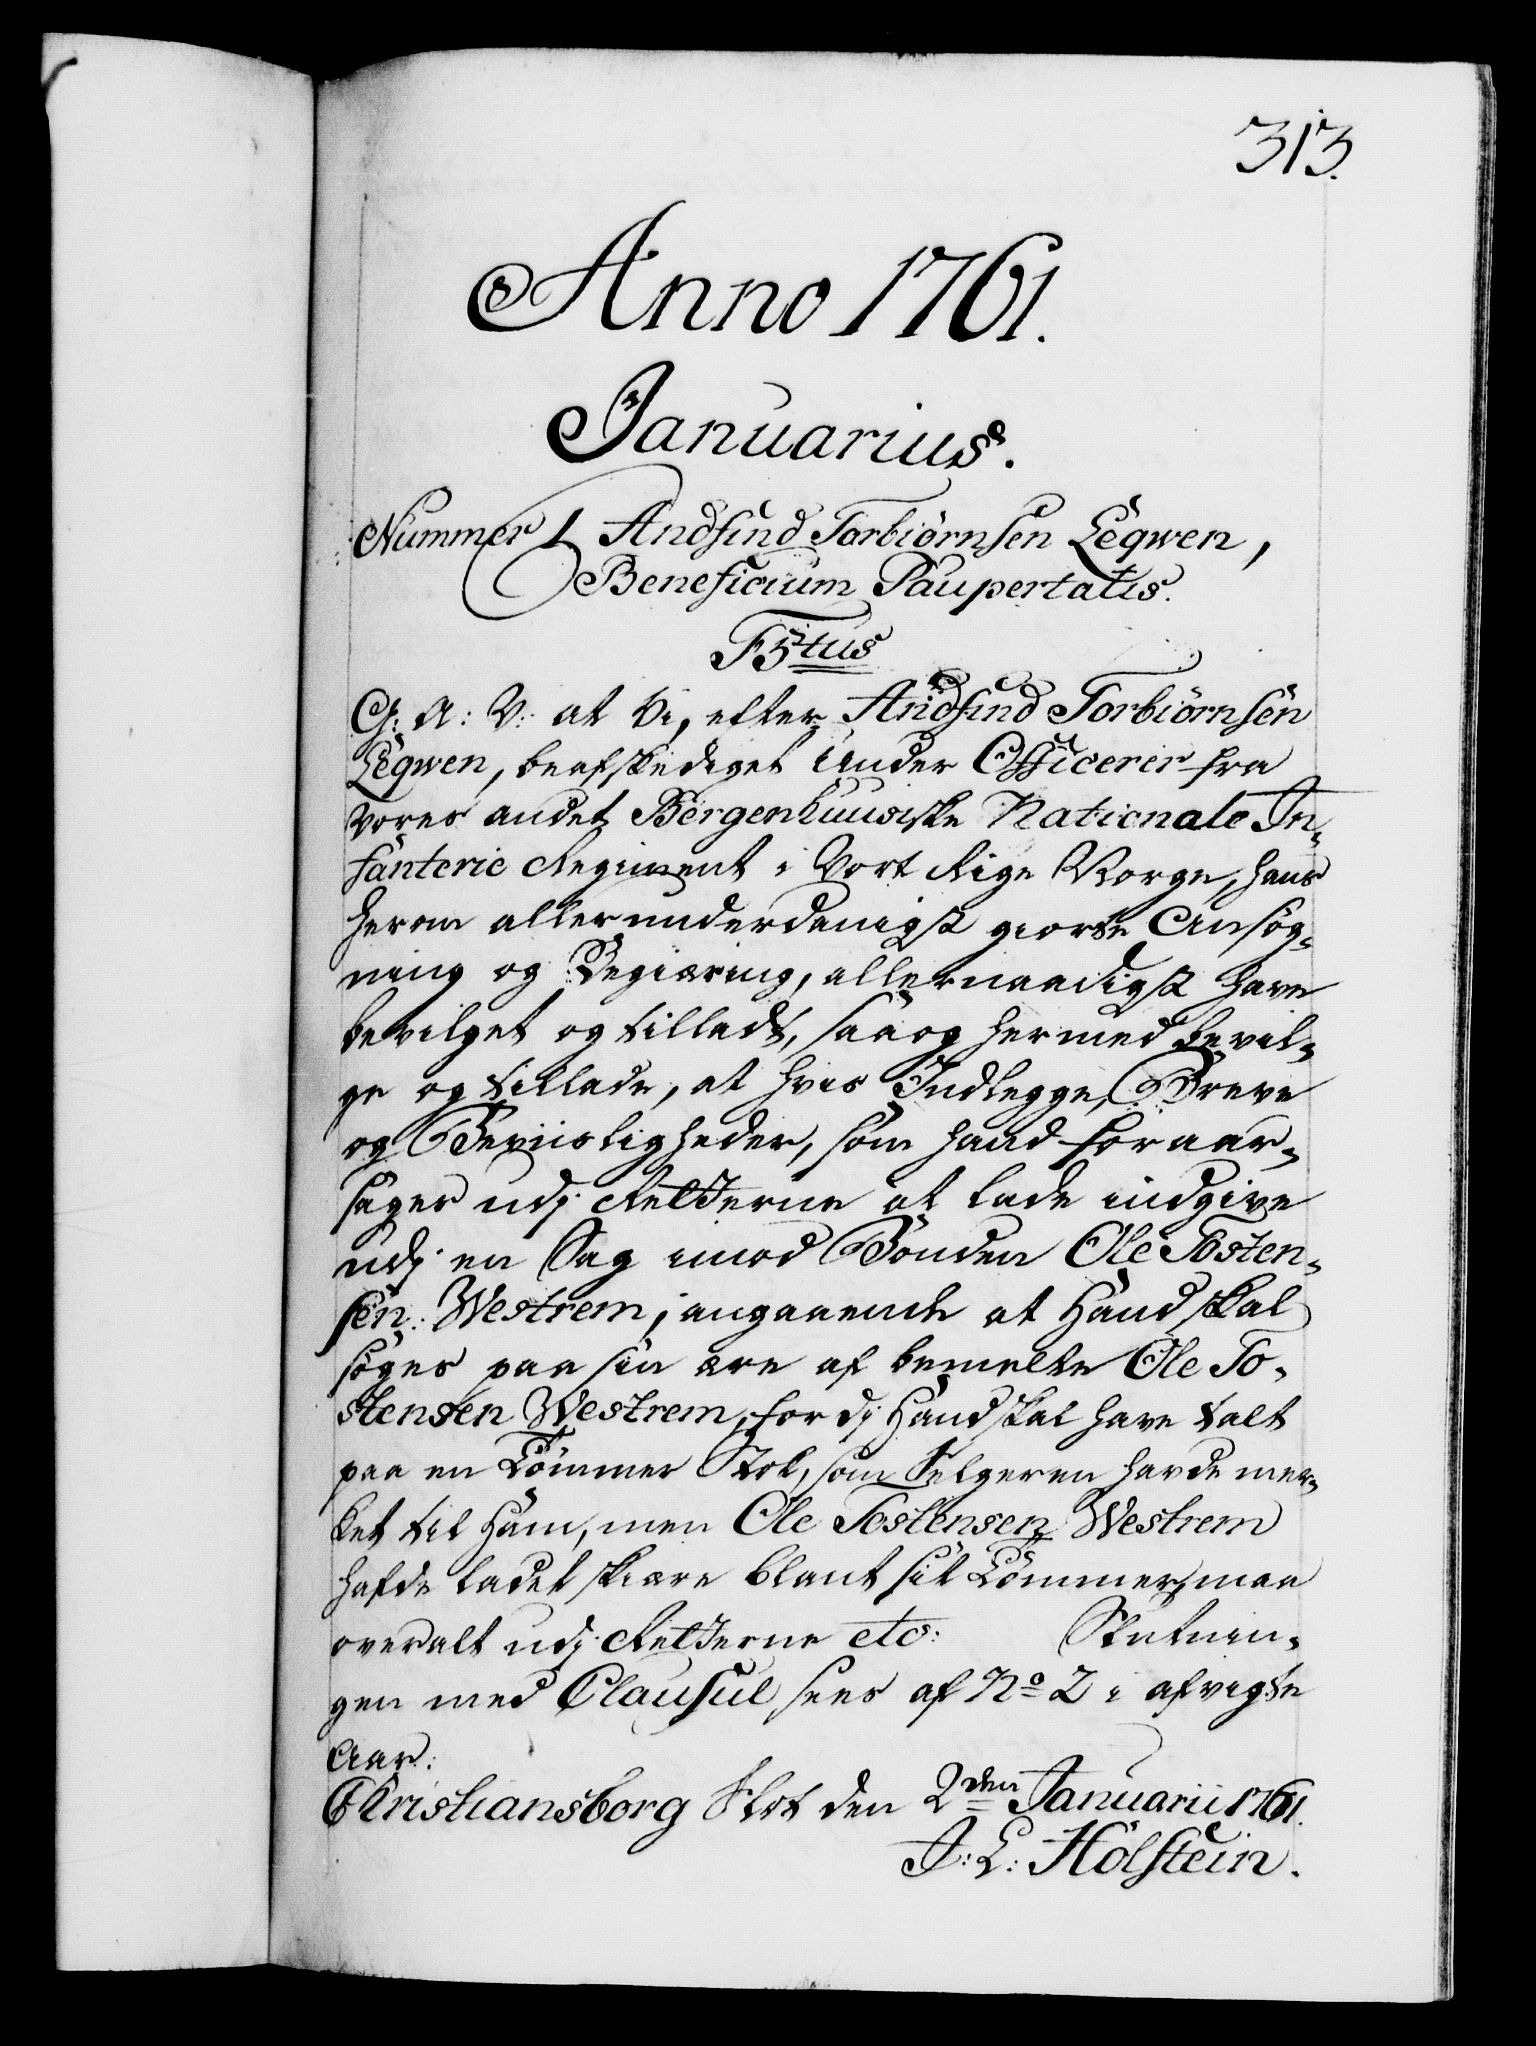 313.
Anno 1761.
Januarius.
Nummer 1 Andsind Torbiörnsen Legwen,
Beneficium Paupertatis.
F5tus
C: A: V: at Vi, efter Andsind Torbiörnsen
Legwen, beafskediget Under Officerer fra
Vores andet Bergenhuusiske Nationale In-
fanterie Regiment i Vort Rige Norge, hans
herom allerunderdanigst giorte Ansøg-
ning og Begiæring, allernaadigst have
bevilget og tilladt, saa og hermed bevil-
ge og tillade, at hvis Indlegge, Breve
og Beviisligheder, som hand foraar-
sages udj Retterne at lade indgive
udj en Sag imod Bonden Ole Tosten-
sen Westrem, angaaende at Hand skal
søges paa sin ære af bemelte Ole To-
stensen Westrem, fordj Hand skal have talt
paa en Tömmer Stok, som Selgeren havde mer-
ket til Ham, men Ole Tostensen Westrem
hafde ladet skiære blant sit Tömmer, maa
overalt udj Retterne etc: Slutnin-
gen med Clausul sees af No 2 i afvigte
Aar.
Christiansborg Slot den 2den Januarii 1761.
J: L: Holstein.